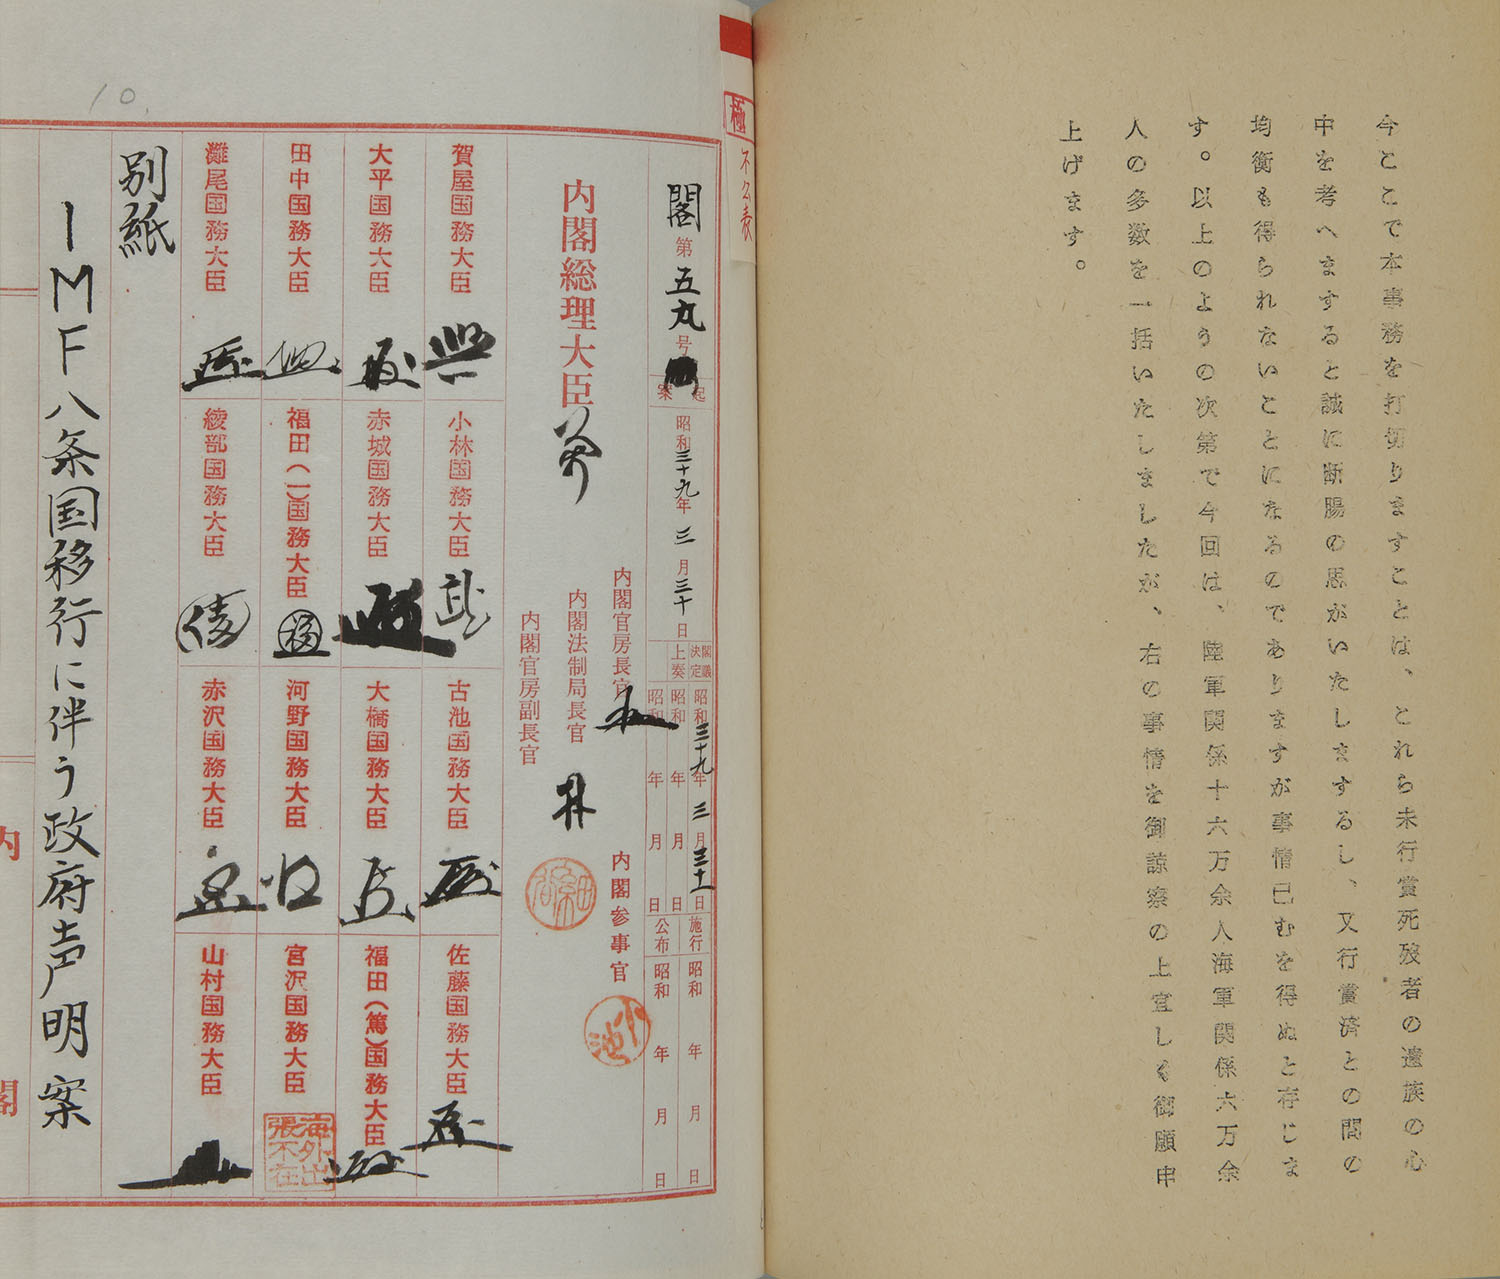 今ここで本事務を打切りますことは、これら未行賞死歿者の遺族の心
中を考へますると誠に断腸の思がいたしまするし、又行賞済との間の
均衡も得られないことになるのでありますが事情已むを得ぬと存じま
す。以上のようの次第で今回は、陸軍関係十六万余人海軍関係六万余
人の多数を一括いたしましたが、右の事情を御諒察の上宜しく御願申
上げます。
極
不公表
閣第五九号
起案
昭和三十九年三月三十日
閣議決定
昭和三十九年三月三十一日
上奏
昭和 年 月 日
施行
昭和 年 月 日
公布
昭和 年 月 日
内閣総理大臣
内閣官房長官
内閣法制局長官
内閣官房副長官
内閣参事官
賀屋国務大臣
小林国務大臣
古池国務大臣
佐藤国務大臣
大平国務大臣
赤城国務大臣
大橋国務大臣
福田(篤)国務大臣
田中国務大臣
福田(一)国務大臣
河野国務大臣
宮沢国務大臣
海外出張不在
灘尾国務大臣
綾部国務大臣
赤沢国務大臣
山村国務大臣
別紙
IMF八条国移行に伴う政府声明案
内
閣
10.